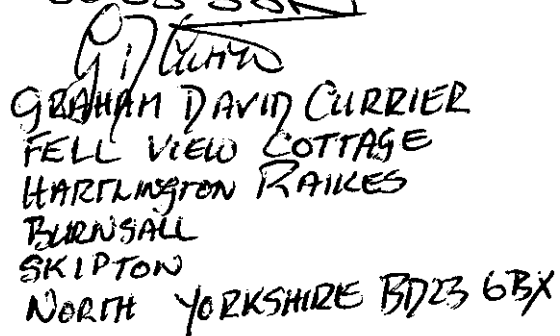 GRAHAM DAVID CURRIER
FELL VIEW COTTAGE
HARTLINGTON RAIKES
BURNSALL
SKIPTON
NORTH YORKSHIRE BD23 6BX